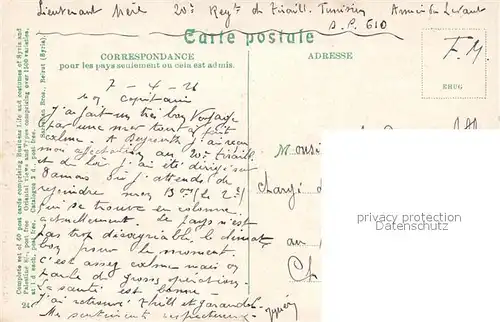 Lieutenant Meil 20e Regt de Tiraill. Tunisien Armée du Levant
S.P. 610
Carte postale
CORRESPONDANCE
pour les pays seulement ou cela est admis.
ADRESSE
F.M.
BRUG
7-4-26
Mon Capitaine
J'ai fait un très bon Voyage
par une mer tout à fait
calme. A Beyrouth j'ai reçu
mon affectation au 20e tiraill.
et de là j'ai été dirigé sur
Damas où j'attends de
rejoindre mon Bon (le 2e)
qui se trouve en colonne
actuellement. Le pays n'est
pas trop désagréable, le climat
bon pour le moment.
C'est assez calme mais on
parle de grosses opérations.
La santé est bonne.
J'ai retrouvé et
Mes sentiments respectueux
Monsi
Chargé
au
Ch
Complete set of 60 post cards comprising Business Life and costumes of Syria and
Palestine post free. Oriental Views and Types comprising over 1000 varieties.
at 1 d each, post free. Catalogue 1 d., post free.
Bros., Beirut (Syria).
privacy protection
Datenschutz